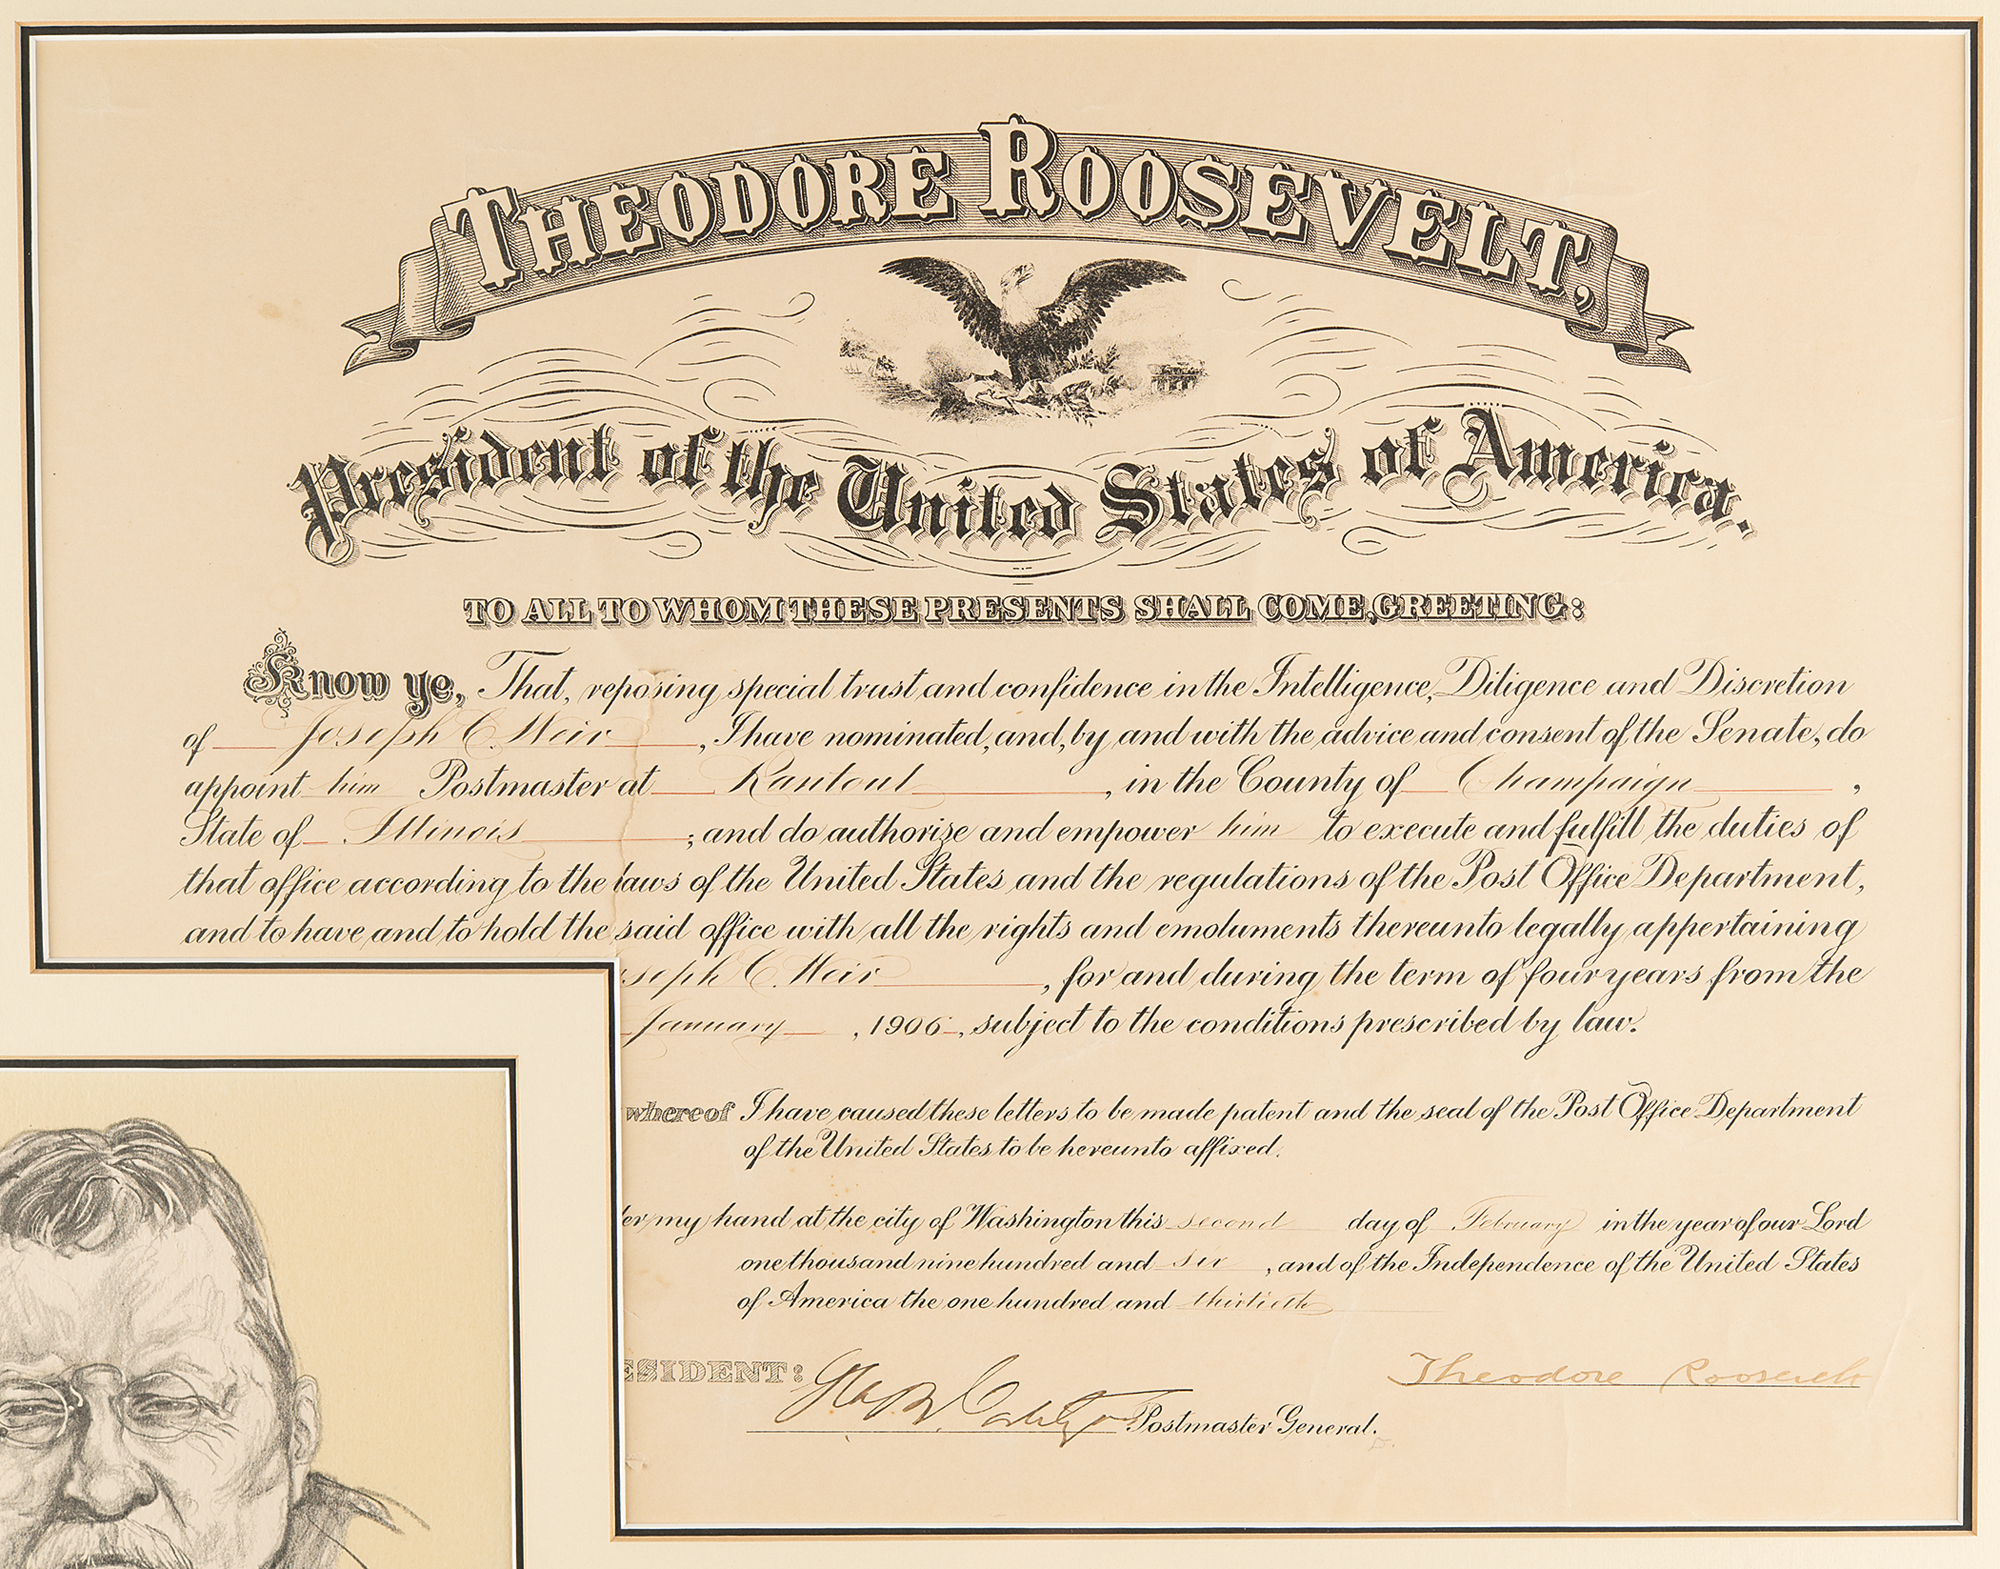 THEODORE ROOSEVELT,
President of the United States of America.
TO ALL TO WHOM THESE PRESENTS SHALL COME, GREETING:
Know ye, That, reposing special trust and confidence in the Intelligence, Diligence and Discretion
of Joseph C. Weir, I have nominated, and, by and with the advice and consent of the Senate, do
appoint him Postmaster at Rantoul, in the County of Champaign,
State of Illinois; and do authorize and empower him to execute and fulfill the duties of
that office according to the laws of the United States and the regulations of the Post Office Department,
and to have and to hold the said office with all the rights and emoluments thereunto legally appertaining
seph C. Weir, for and during the term of four years from the
January, 1906, subject to the conditions prescribed by law.
whereof I have caused these letters to be made patent and the seal of the Post Office Department
of the United States to be hereunto affixed.
er my hand at the city of Washington this second day of February in the year of our Lord
one thousand nine hundred and six, and of the Independence of the United States
of America the one hundred and thirtieth
ESIDENT:
Theodore Roosevelt
Geo. B. Cortelyou Postmaster General.